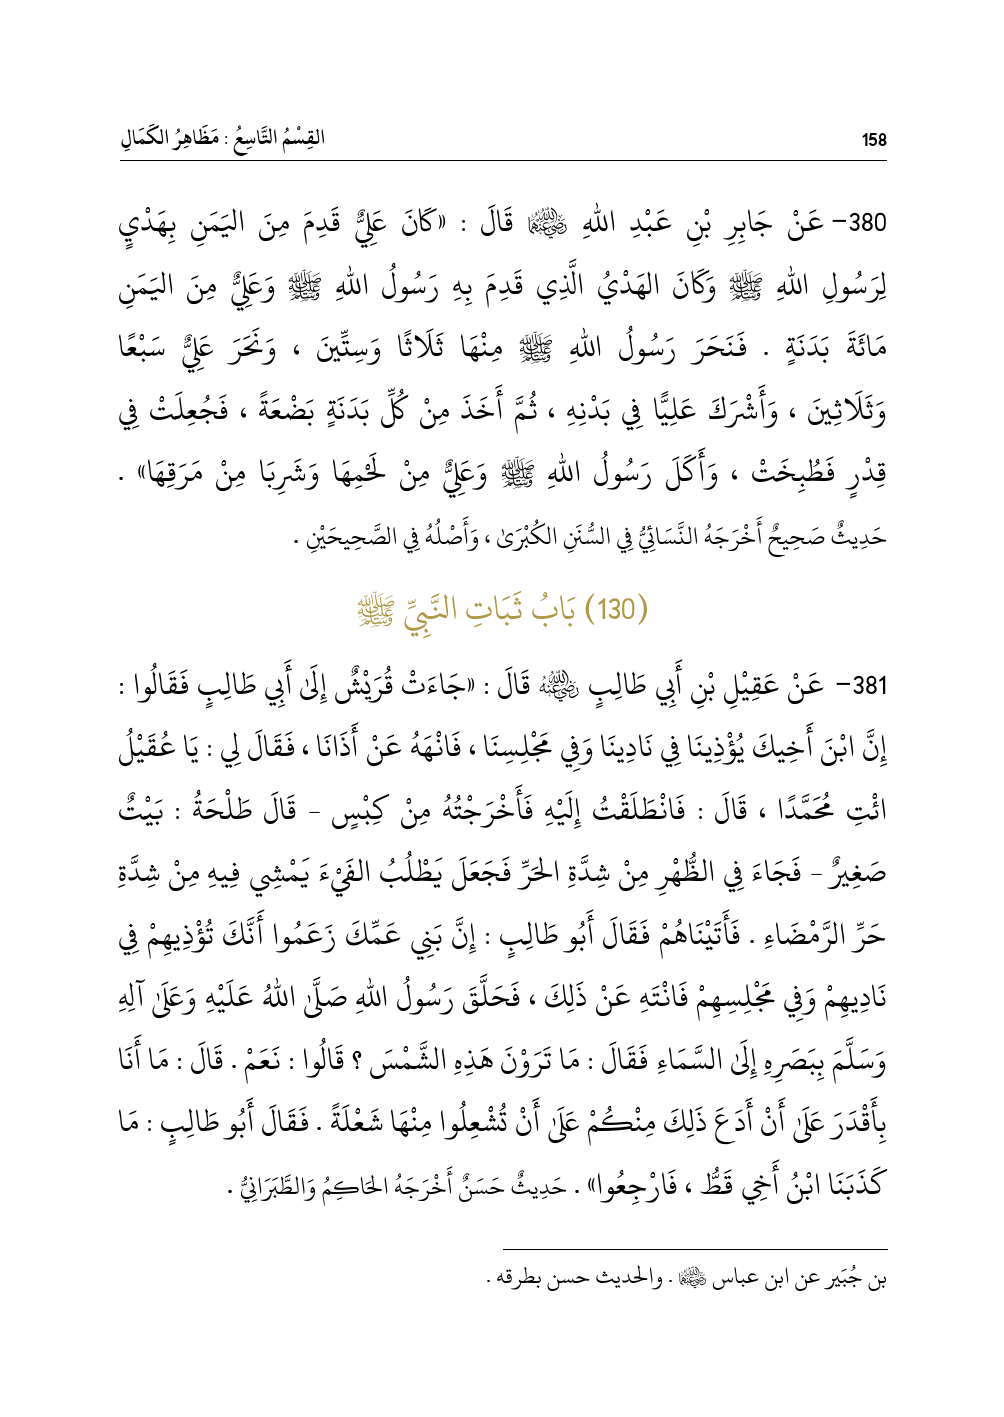 158 القِسْمُ التَّاسِعُ : مَظَاهِرُ الكَمَالِ
380- عَنْ جَابِرِ بْنِ عَبْدِ اللهِ رضي الله عنهما قَالَ : «كَانَ عَلِيٌّ قَدِمَ مِنَ اليَمَنِ بِهَدْيٍ
لِرَسُولِ اللهِ ﷺ وَكَانَ الهَدْيُ الَّذِي قَدِمَ بِهِ رَسُولُ اللهِ ﷺ وَعَلِيٌّ مِنَ اليَمَنِ
مَائَةَ بَدَنَةٍ . فَنَحَرَ رَسُولُ اللهِ ﷺ مِنْهَا ثَلَاثًا وَسِتِّينَ ، وَنَحَرَ عَلِيٌّ سَبْعًا
وَثَلَاثِينَ ، وَأَشْرَكَ عَلِيًّا فِي بَدْنِهِ ، ثُمَّ أَخَذَ مِنْ كُلِّ بَدَنَةٍ بَضْعَةً ، فَجُعِلَتْ فِي
قِدْرٍ فَطُبِخَتْ ، وَأَكَلَ رَسُولُ اللهِ ﷺ وَعَلِيٌّ مِنْ لَحْمِهَا وَشَرِبَا مِنْ مَرَقِهَا» .
حَدِيثٌ صَحِيحٌ أَخْرَجَهُ النَّسَائِيُّ فِي السُّنَنِ الكُبْرَىٰ ، وَأَصْلُهُ فِي الصَّحِيحَيْنِ .
(130) بَابُ ثَبَاتِ النَّبِيِّ ﷺ
381- عَنْ عَقِيْلِ بْنِ أَبِي طَالِبٍ رضي الله عنه قَالَ : «جَاءَتْ قُرَيْشٌ إِلَىٰ أَبِي طَالِبٍ فَقَالُوا :
إِنَّ ابْنَ أَخِيكَ يُؤْذِينَا فِي نَادِينَا وَفِي مَجْلِسِنَا ، فَانْهَهُ عَنْ أَذَانَا ، فَقَالَ لِي : يَا عُقَيْلُ
ائْتِ مُحَمَّدًا ، قَالَ : فَانْطَلَقْتُ إِلَيْهِ فَأَخْرَجْتُهُ مِنْ كِبْسٍ - قَالَ طَلْحَةُ : بَيْتٌ
صَغِيرٌ - فَجَاءَ فِي الظُّهْرِ مِنْ شِدَّةِ الحَرِّ فَجَعَلَ يَطْلُبُ الفَيْءَ يَمْشِي فِيهِ مِنْ شِدَّةِ
حَرِّ الرَّمْضَاءِ . فَأَتَيْنَاهُمْ فَقَالَ أَبُو طَالِبٍ : إِنَّ بَنِي عَمِّكَ زَعَمُوا أَنَّكَ تُؤْذِيهِمْ فِي
نَادِيهِمْ وَفِي مَجْلِسِهِمْ فَانْتَهِ عَنْ ذَلِكَ ، فَحَلَّقَ رَسُولُ اللهِ صَلَّىٰ اللهُ عَلَيْهِ وَعَلَىٰ آلِهِ
وَسَلَّمَ بِبَصَرِهِ إِلَىٰ السَّمَاءِ فَقَالَ : مَا تَرَوْنَ هَذِهِ الشَّمْسَ ؟ قَالُوا : نَعَمْ . قَالَ : مَا أَنَا
بِأَقْدَرَ عَلَىٰ أَنْ أَدَعَ ذَلِكَ مِنْكُمْ عَلَىٰ أَنْ تُشْعِلُوا مِنْهَا شَعْلَةً . فَقَالَ أَبُو طَالِبٍ : مَا
كَذَبَنَا ابْنُ أَخِي قَطُّ ، فَارْجِعُوا» . حَدِيثٌ حَسَنٌ أَخْرَجَهُ الحَاكِمُ وَالطَّبَرَانِيُّ .
بن جُبَير عن ابن عباس رضي الله عنهما . والحديث حسن بطرقه .